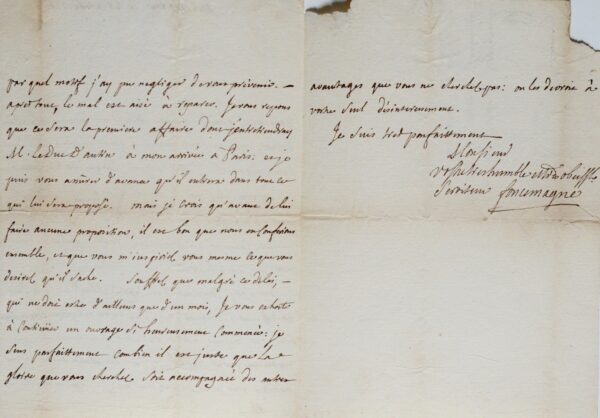 par quel motif j'ay pu negliger de vous prévenir. –
après tout, le mal est aisé a réparer. Je vous répons
que ce sera la premiere affaire dont j'entretiendray
M. le Duc d'antin à mon arrivée à Paris: et je
puis vous assurer d'avance qu'il entrera dans tout ce
qui lui sera proposé. mais je crois qu'avant de lui
faire aucune proposition, il est bon que nous en conferions
ensemble, et que vous m'instruisiez vous meme ce que vous
desirez qu'il sache. Souffrez que malgré ce delai, –
qui ne doit estre d'ailleurs que d'un mois, Je vous exhorte
à continüer un ouvrage si heureusement commencé: je
sens parfaittement combien il est juste que la
gloire que vous cherchez soit accompagnée des autres
avantages que vous ne cherchez pas: on les devroit à
votre seul désinteressement.
Je suis tres parfaittement
Monsieur
Votre tres humble et tres obeiss.
Serviteur foncemagne